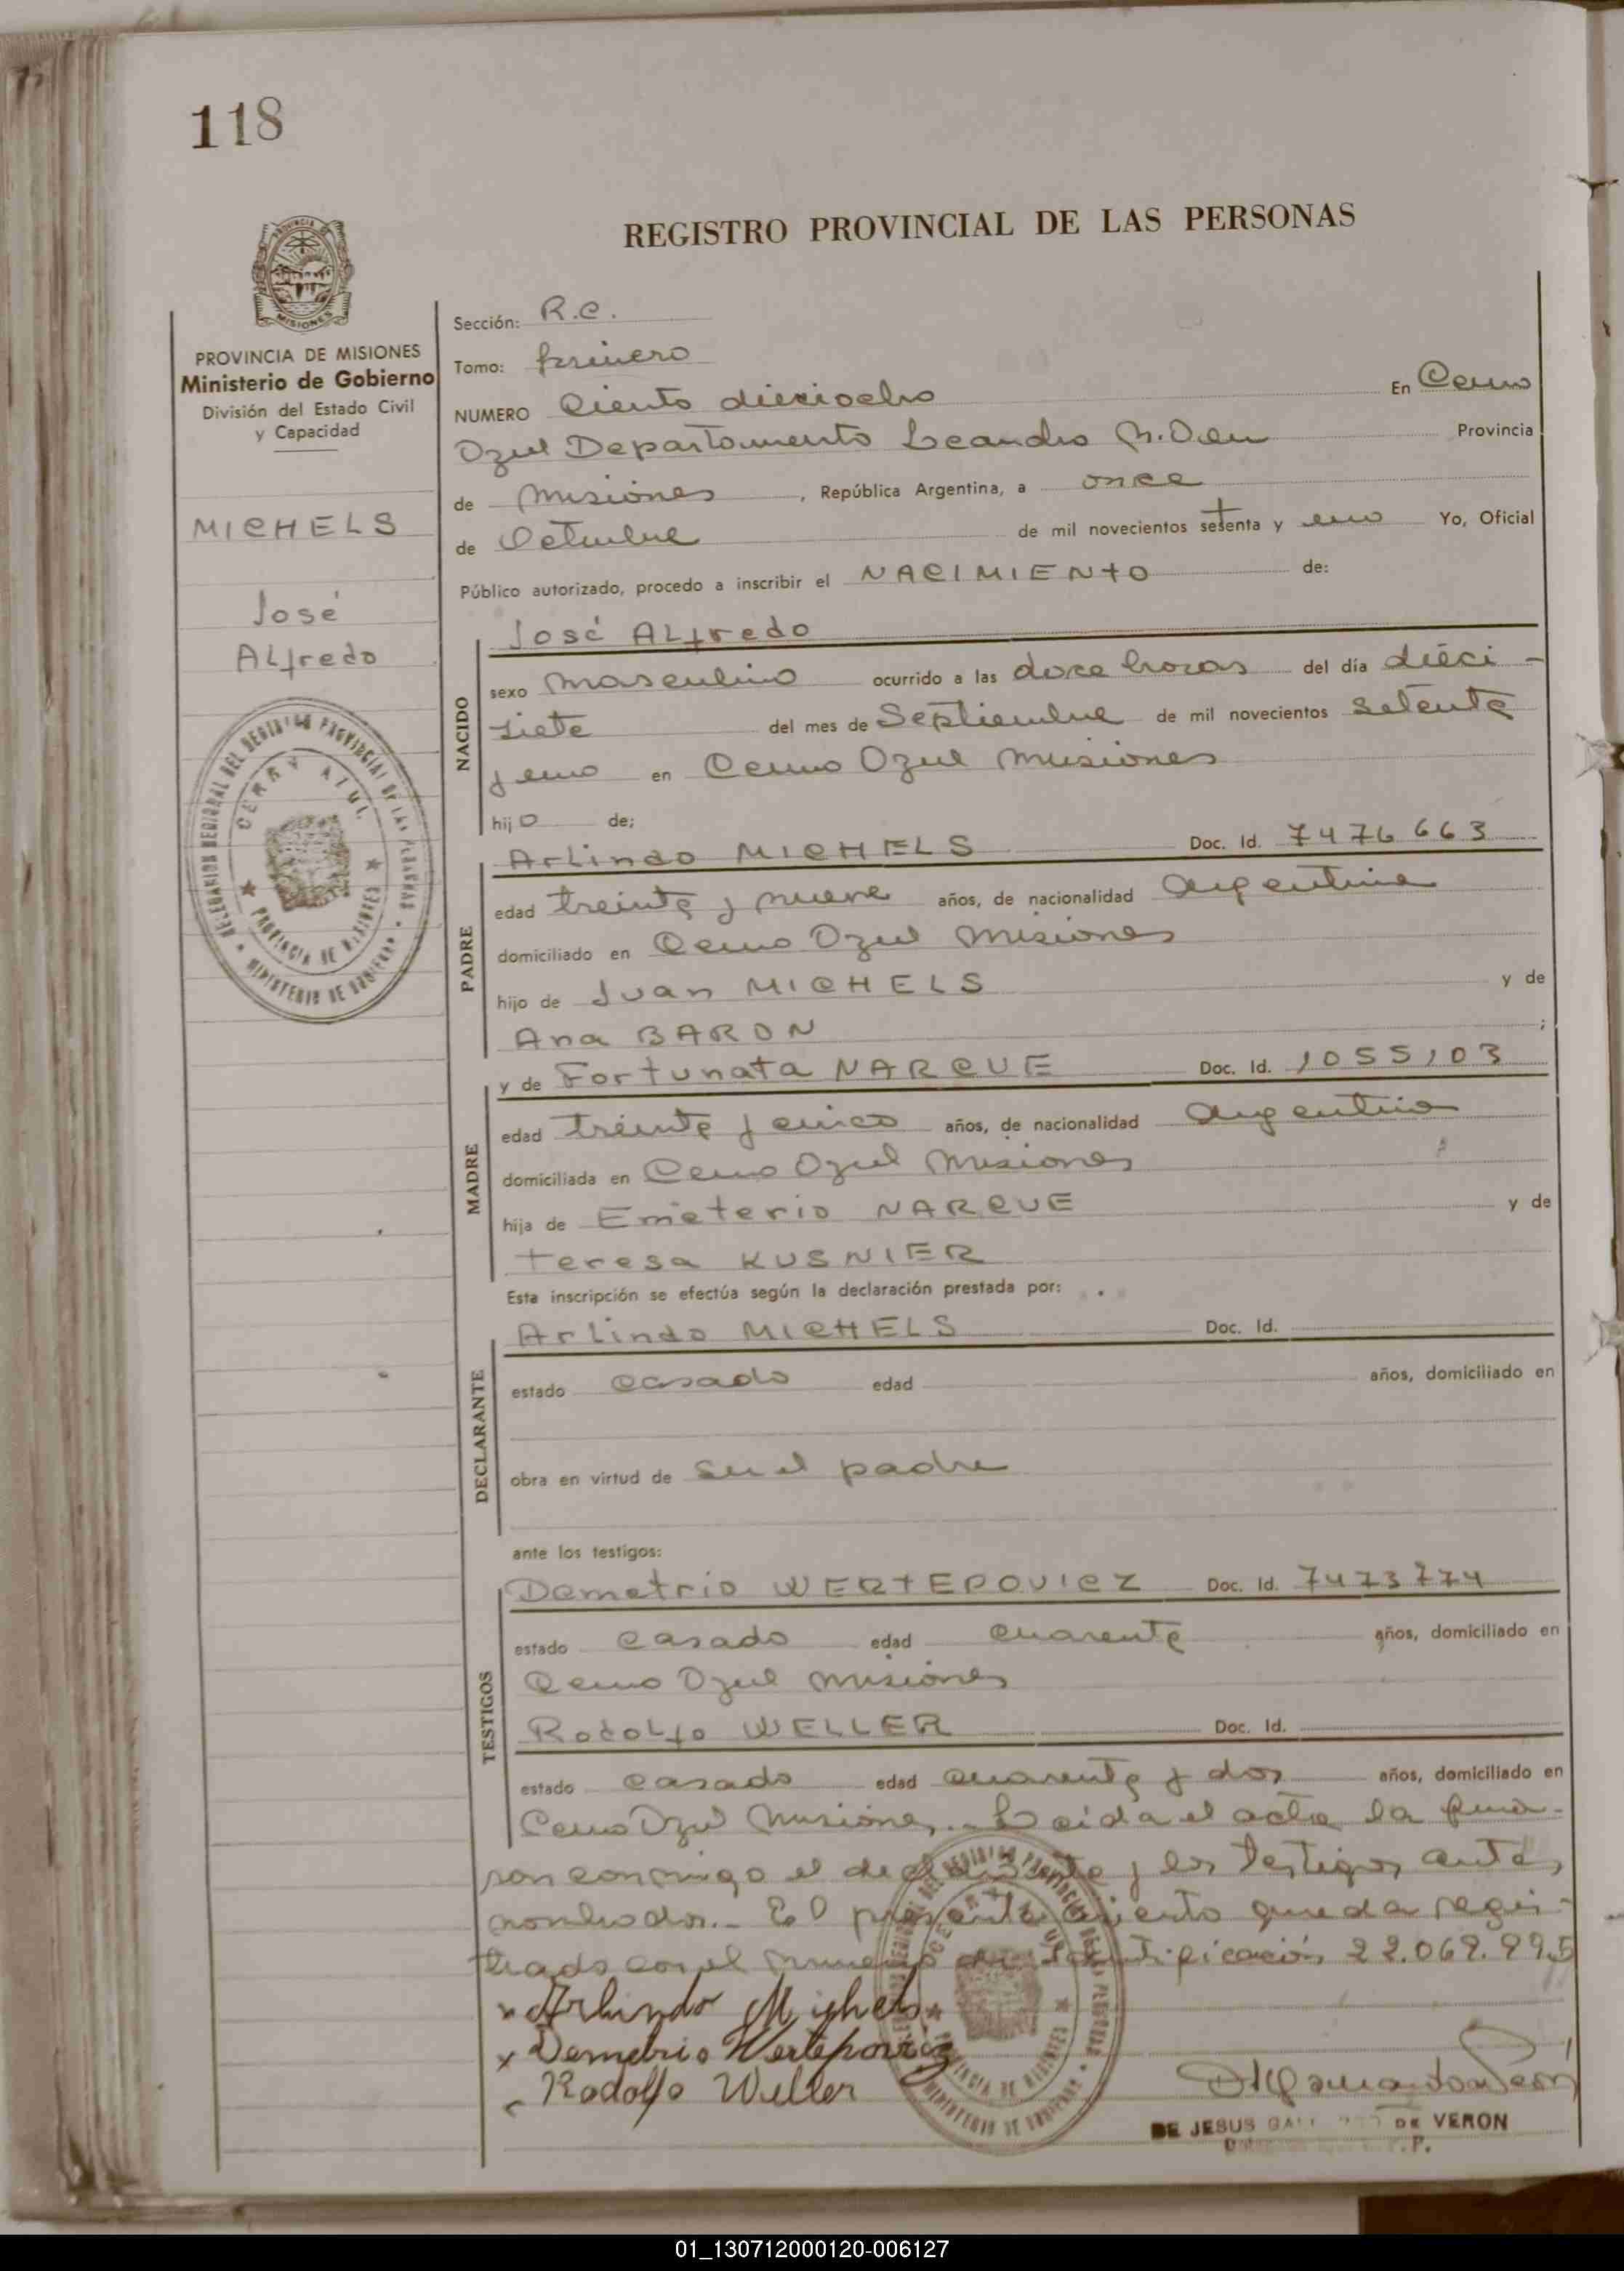 118
REGISTRO PROVINCIAL DE LAS PERSONAS
PROVINCIA DE MISIONES
Ministerio de Gobierno
División del Estado Civil
y Capacidad
MICHELS
José
Alfredo
Sección: R.C.
Tomo: primero
NUMERO Ciento dieciocho En Cerro
Azul Departamento Leandro N. Alem Provincia
de Misiones, República Argentina, a once
de Octubre de mil novecientos setenta y uno Yo, Oficial
Público autorizado, procedo a inscribir el NACIMIENTO de:
NACIDO
José Alfredo
sexo masculino ocurrido a las doce horas del día dieci-
siete del mes de Septiembre de mil novecientos setenta
y uno en Cerro Azul Misiones
hijo de;
PADRE
Arlindo MICHELS Doc. Id. 7476663
edad treinta y nueve años, de nacionalidad argentina
domiciliado en Cerro Azul Misiones
hijo de Juan MICHELS y de
Ana BARON ;
MADRE
y de Fortunata NARCUE Doc. Id. 1055103
edad treinta y cinco años, de nacionalidad argentina
domiciliada en Cerro Azul Misiones
hija de Emeterio NARCUE y de
Teresa KUSNIER
Esta inscripción se efectúa según la declaración prestada por:
DECLARANTE
Arlindo MICHELS Doc. Id.
estado casado edad años, domiciliado en
obra en virtud de ser el padre
ante los testigos:
TESTIGOS
Demetrio WERTEPOVICZ Doc. Id. 7473774
estado casado edad cuarenta años, domiciliado en
Cerro Azul Misiones
Rodolfo WELLER Doc. Id.
estado casado edad cuarenta y dos años, domiciliado en
Cerro Azul Misiones.- Leida el acta la firma-
ron conmigo el declarante y los testigos antes
nombrados.- El presente asiento queda regis-
trado con el numero de identificación 22.069.995
Arlindo Mighels
Demetrio Wertepovicz
Rodolfo Weller
DE JESUS DE VERON
DELEGACION REGIONAL DEL REGISTRO PROVINCIAL DE LAS PERSONAS
CERRO AZUL
PROVINCIA DE MISIONES
MINISTERIO DE GOBIERNO
01_130712000120-006127